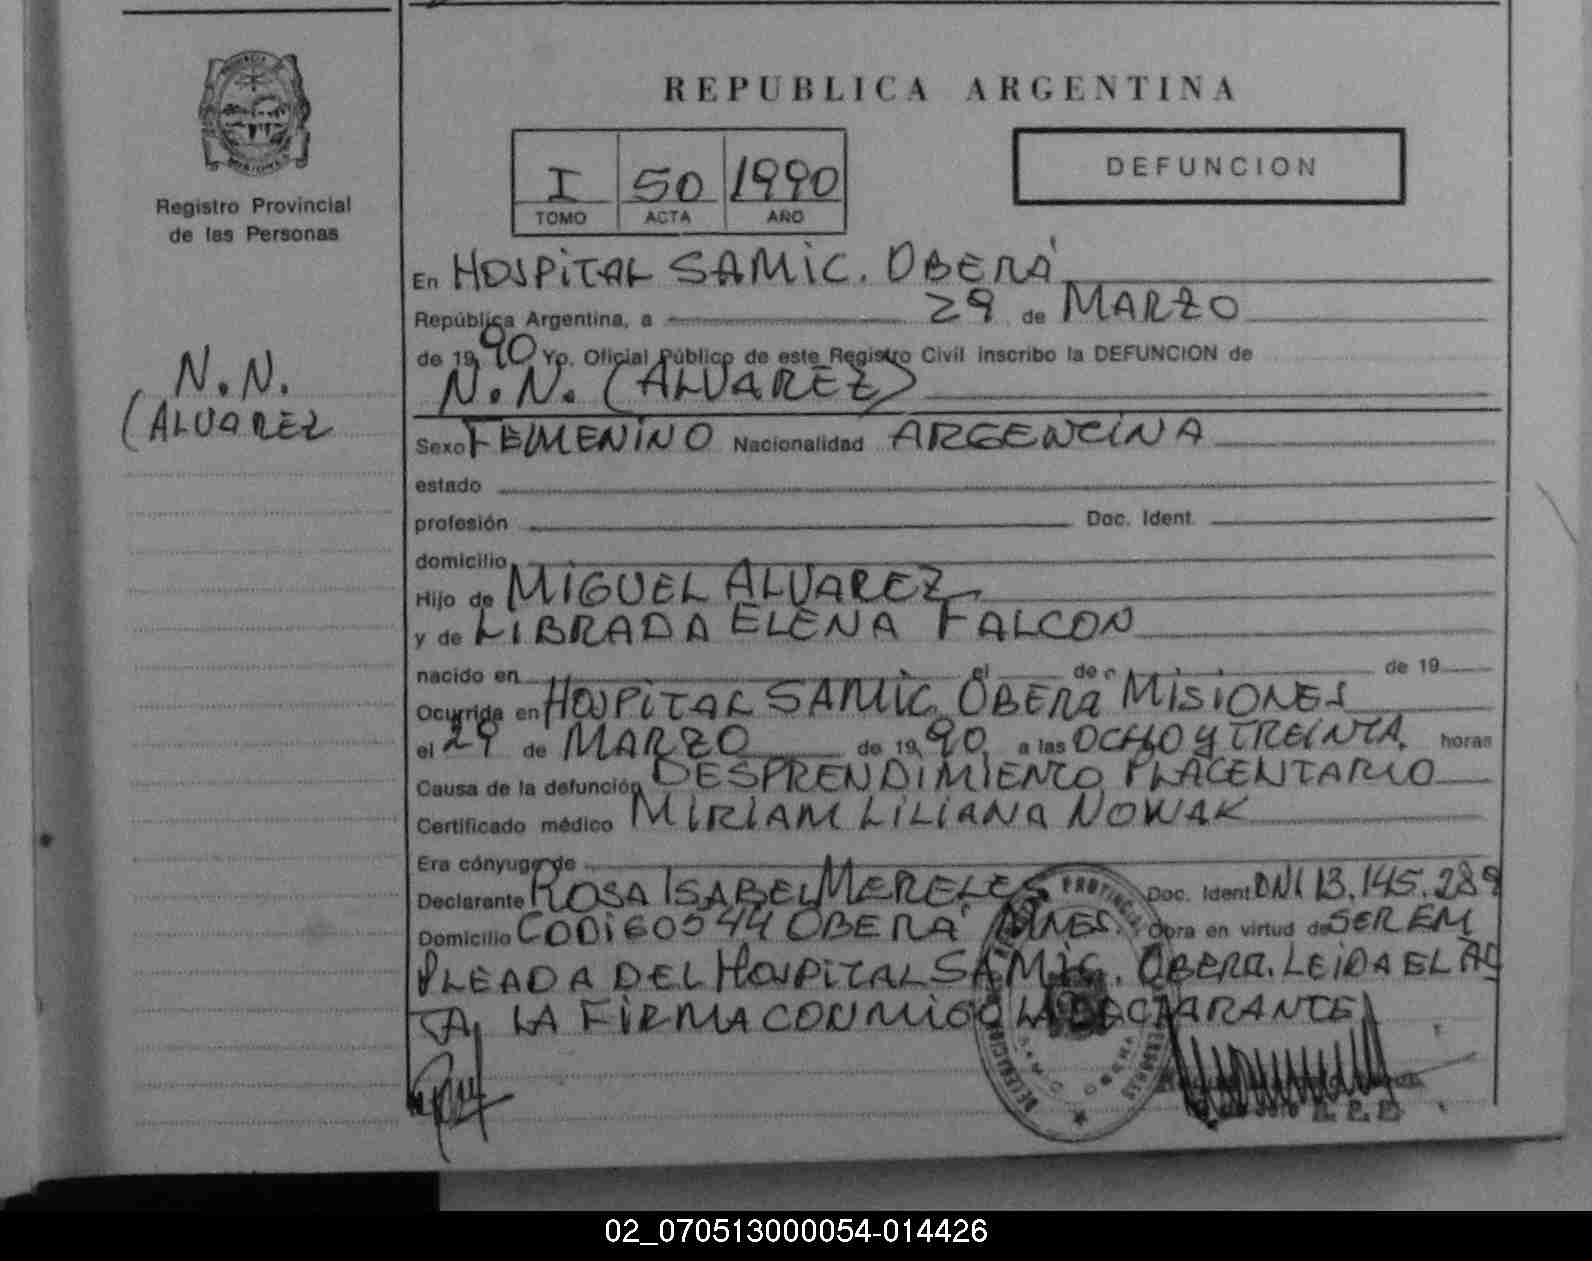 REPUBLICA ARGENTINA
I 50 1990
TOMO ACTA AÑO
DEFUNCION
Registro Provincial
de las Personas
N.N.
(ALVAREZ
En HOSPITAL SAMIC. OBERÁ
República Argentina, a 29 de MARZO
de 1990 Yo, Oficial Público de este Registro Civil inscribo la DEFUNCION de
N.N. (ALVAREZ)
Sexo FEMENINO Nacionalidad ARGENTINA
estado
profesión Doc. Ident.
domicilio
Hijo de MIGUEL ALVAREZ
y de LIBRADA ELENA FALCON
nacido en el de de 19
Ocurrida en HOSPITAL SAMIC OBERA MISIONES
el 29 de MARZO de 1990 a las OCHO y TREINTA. horas
Causa de la defunción DESPRENDIMIENTO PLACENTARIO
Certificado médico MIRIAM LILIANA NOWAK
Era cónyuge de
Declarante ROSA ISABEL MERELES Doc. Ident. DNI 13.145.289
Domicilio CODIGO 544 OBERÁ MNES. Obra en virtud de SER EM
PLEADA DEL HOSPITAL SAMIC. OBERA. LEIDA EL AC
TA, LA FIRMA CONMIGO LA DECLARANTE
02_070513000054-014426